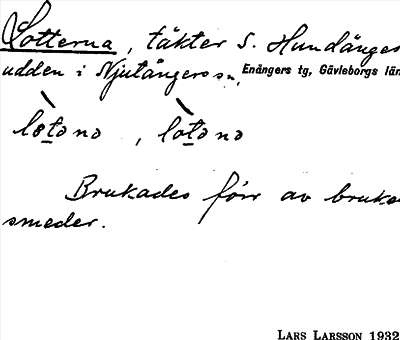 Lotterna, täkter S. Hundänges
udden i Njutångers sn, Enångers tg, Gävleborgs län
lo̱tǝnǝ, lo̱tǝnǝ
Brukades förr av bruks
smeder.
LARS LARSSON 1932